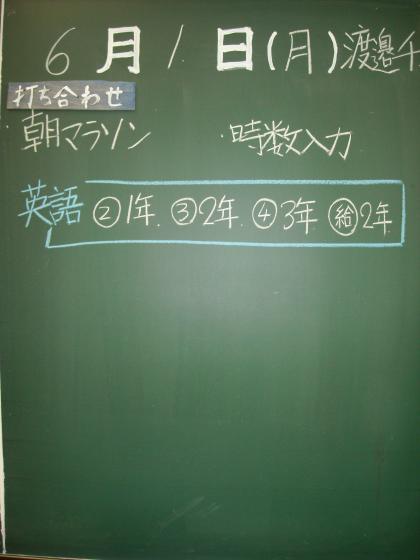 6月1日(月)渡邉千
打ち合わせ
朝マラソン ・時数入力
英語 ②1年. ③2年. ④3年 ㊕2年